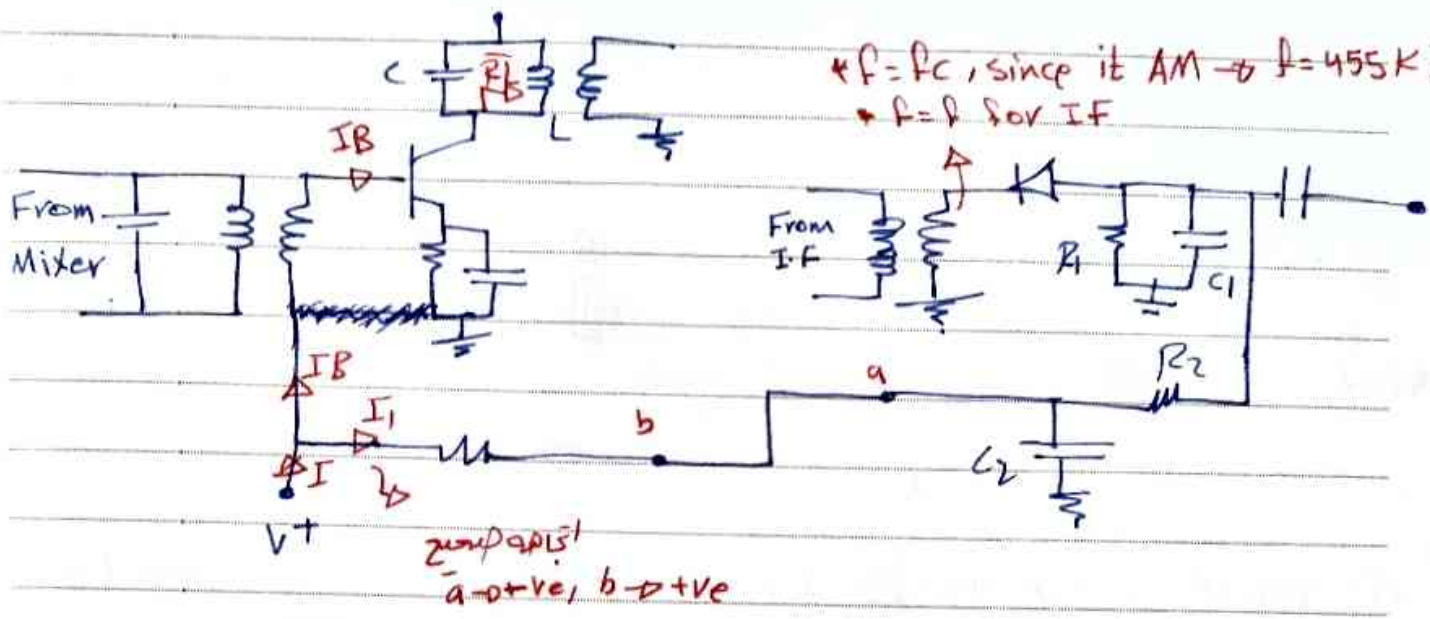 C
RL
L
* f = fc, since it AM → f = 455 K
* f = f for IF
IB
From
Mixer
From
I.F
R1
C1
IB
I1
I
V+
b
a
R2
C2
a → +ve, b → +ve